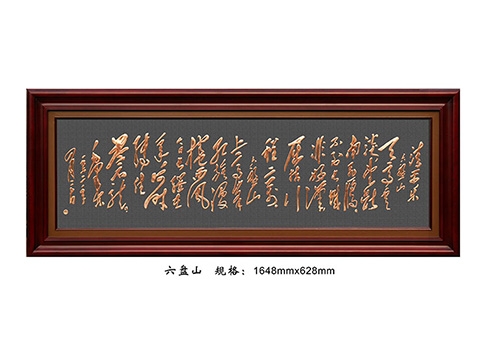 清平乐
六盘山
天高云
淡望断
南飞雁
不到长城
非好汉
屈指行
程二万
六盘山
上高峰
红旗漫
卷西风
今日长缨
在手何时
缚住
苍龙
毛泽东
六盘山 规格：1648mmx628mm